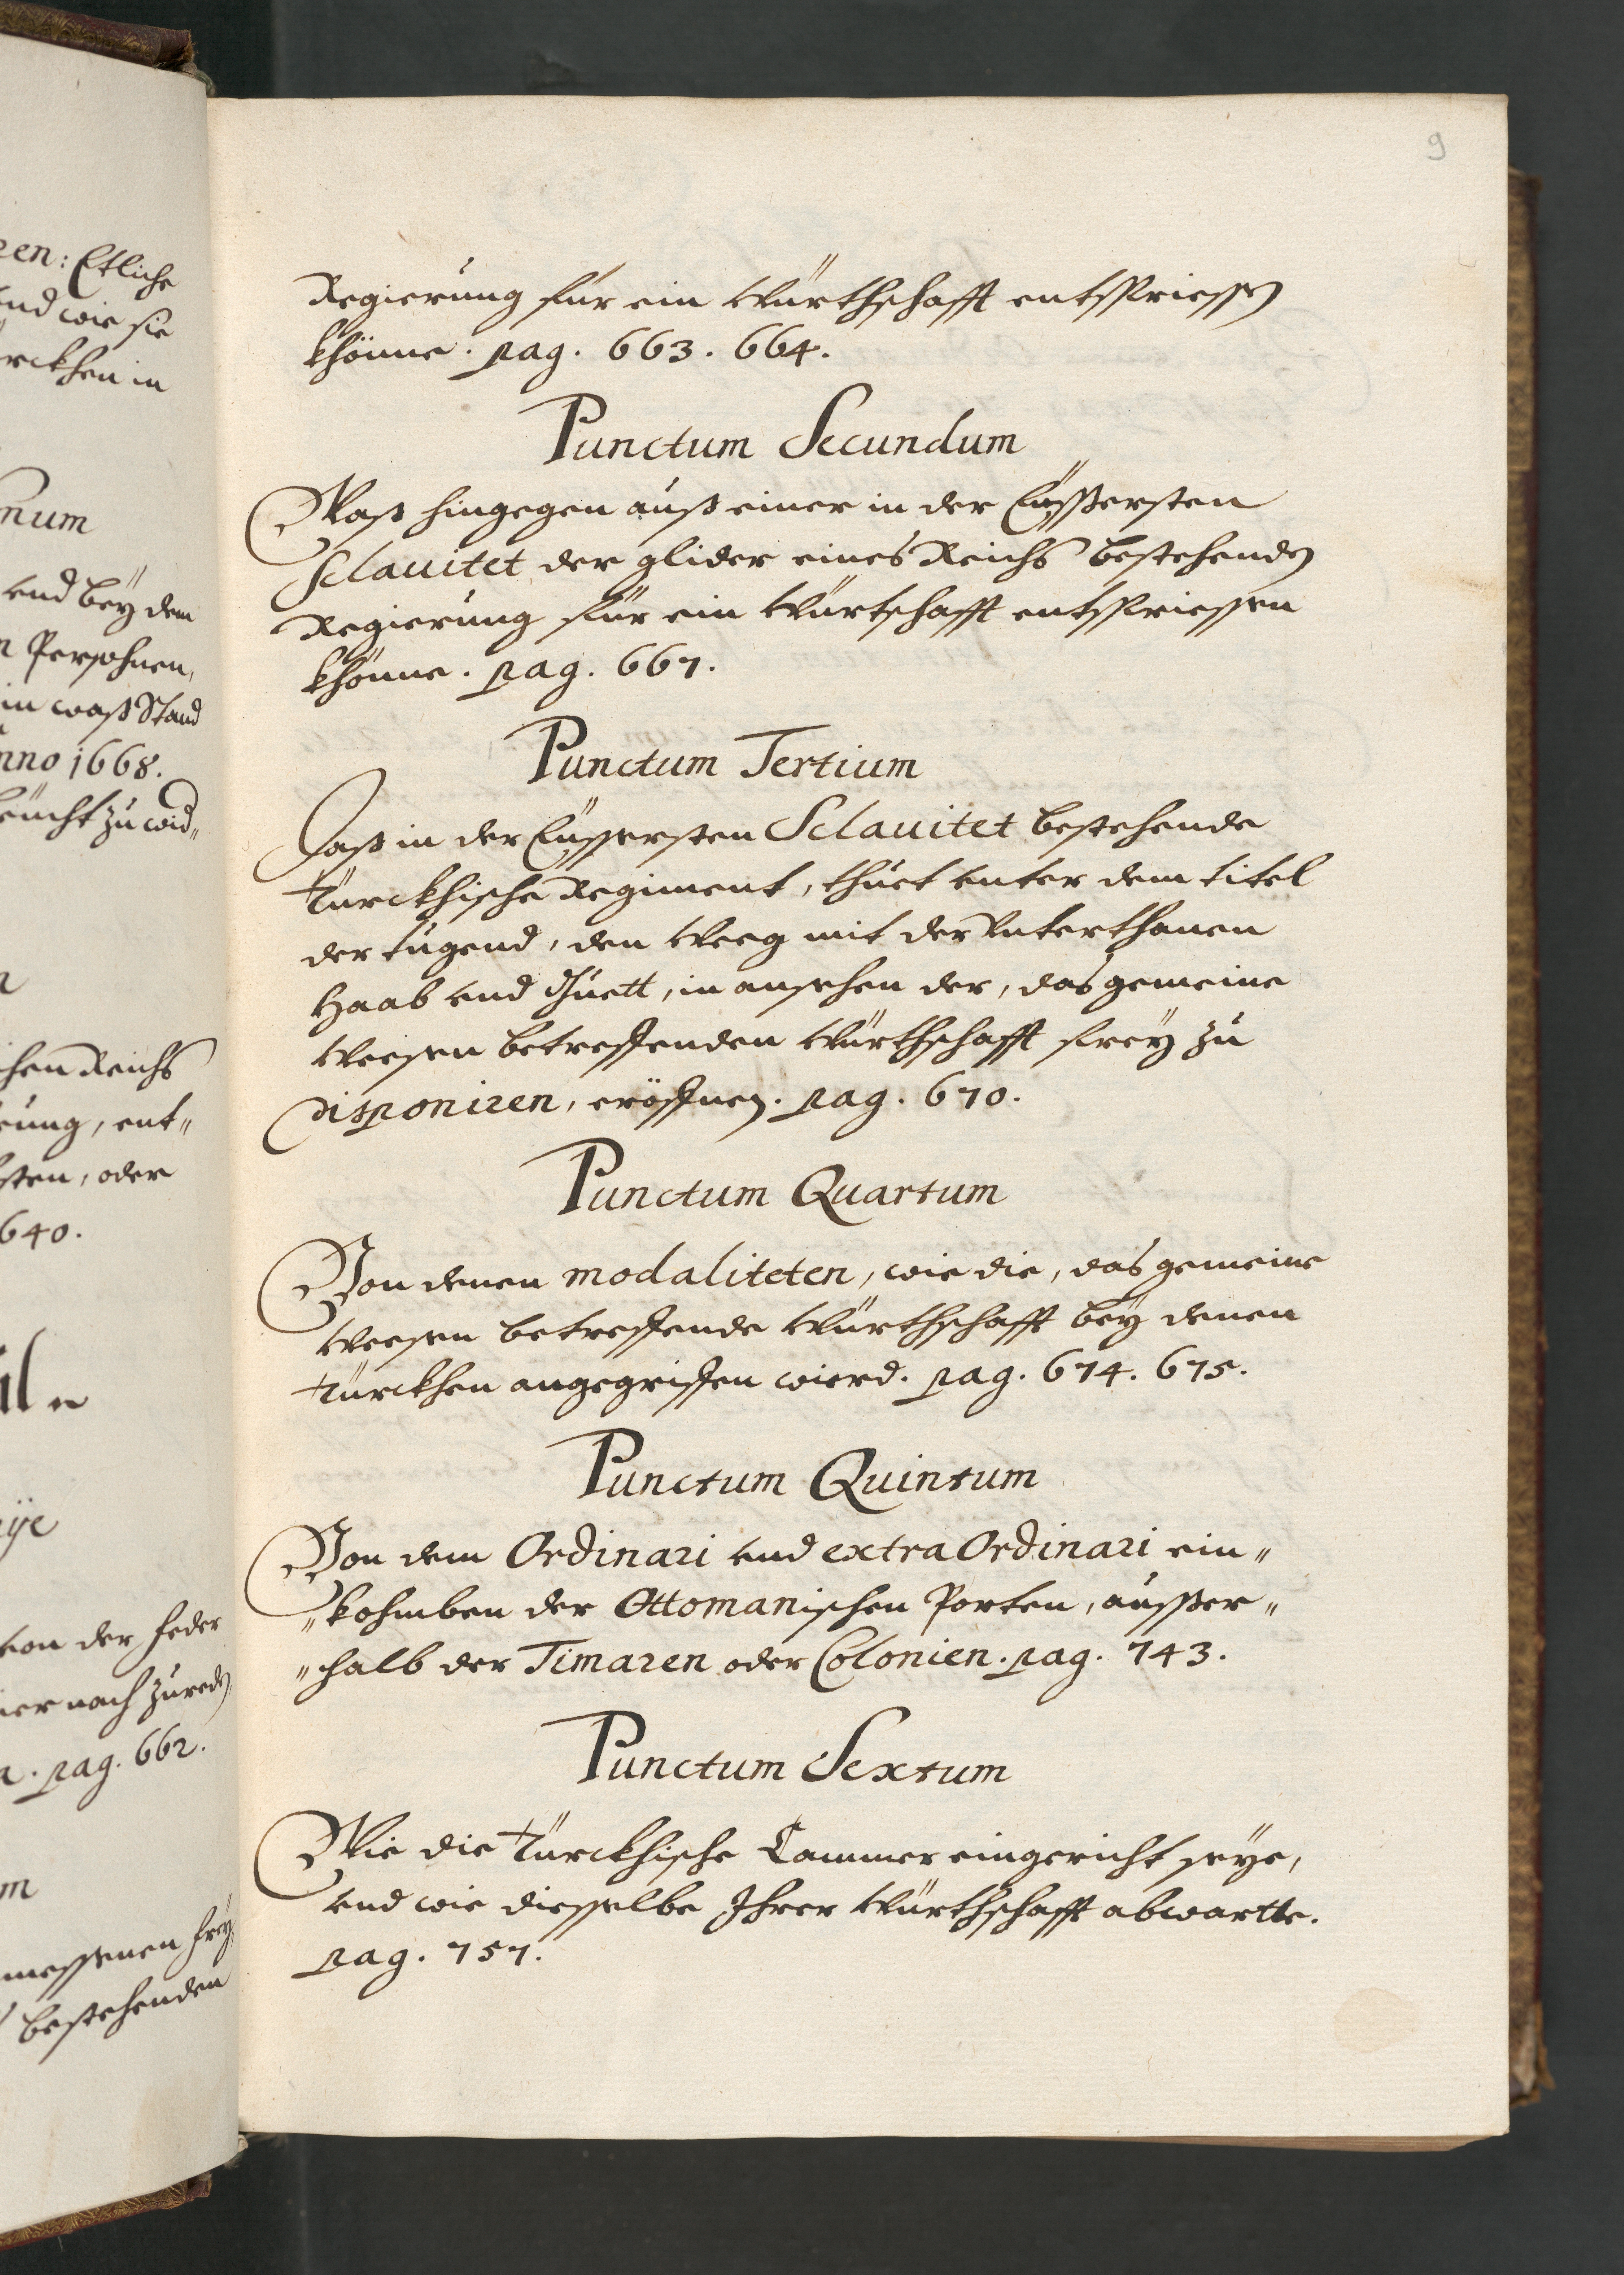 zen: Etliche
und wie sie
rckhen in
num
und beÿ dem
n Persohnen,
in waß Stand
nno 1668.
chen Reichs
rung, ent„
sten, oder
640.
von der feder
ier nach zu red~
pag. 662.
m
messenen freÿ
bestehenden
9
Regierung für ein Würthschafft entsprießen
khönne. pag. 663. 664.
Punctum Secundum
Waß hingegen auß einer in der Eüsßersten
Sclauitet der glider eines Reichs bestehenden
Regierung für ein Würtschafft entspriessen
khönne. pag. 667.
Punctum Tertium
Daß in der Eüssersten Sclauitet bestehende
Türckhische Regiment, thuet unter dem titel
der tugend, den Weeg mit der Unterthanen
Haab und Guett, in ansehen der, das gemeine
Weesen betreffenden Würthschafft freÿ zu
disponiren, eröffnen. pag. 670.
Punctum Quartum
Von denen modaliteten, wie die, das gemeine
Weesen betreffende Würthschafft beÿ denen
Türckhen angegriffen wierd. pag. 674. 675.
Punctum Quintum
Von dem Ordinari und extra Ordinari ein„
„kohmben der Ottomanischen Porten, ausßer„
„halb der Timaren oder Colonien. pag. 743.
Punctum Sextum
Wie die Türckhische Cammer eingericht seÿe,
und wie diesselbe Ihrer Würthschafft abwartte.
pag. 757.